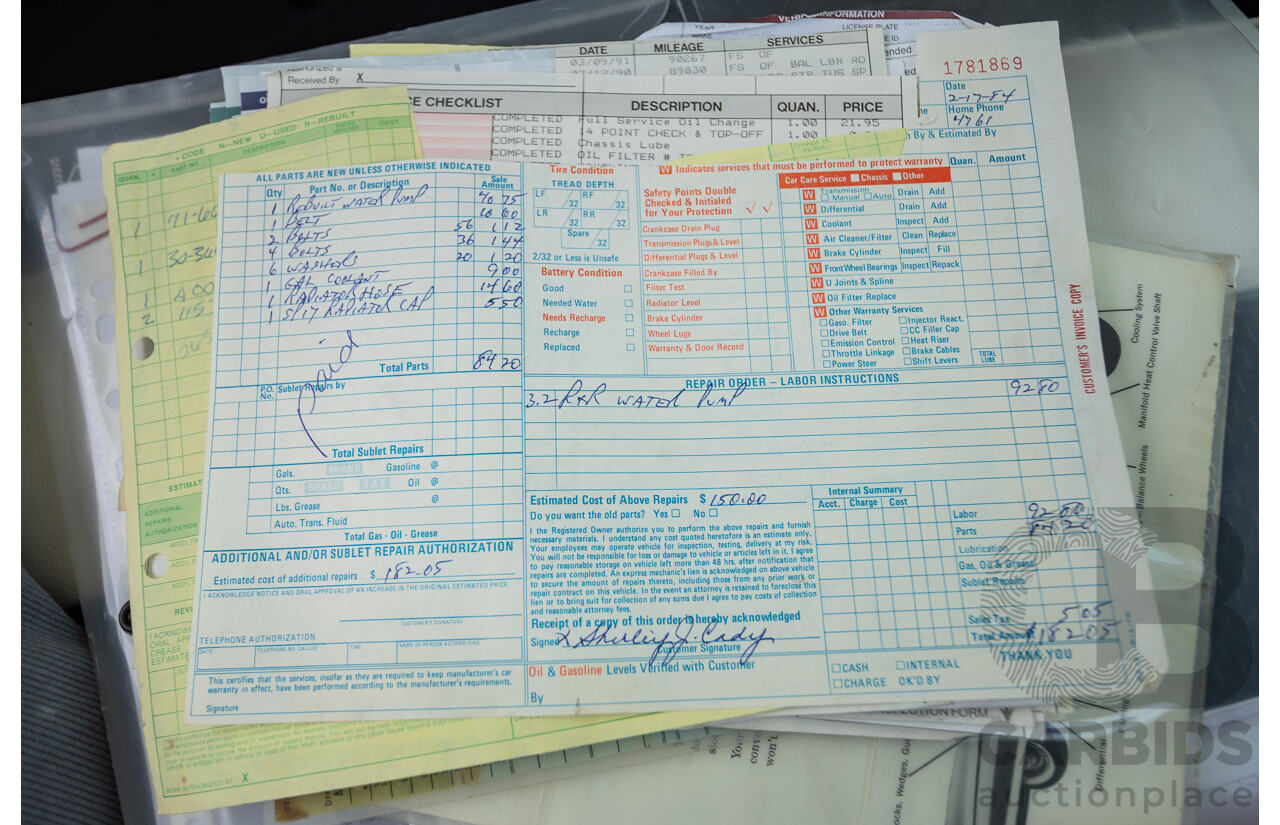 VEHICLE INFORMATION
YEAR
LICENSE PLATE
DATE MILEAGE SERVICES
03/09/91 90267 FS OF
89830 FS OF BAL LBR RO
Received By X
1781869
CE CHECKLIST DESCRIPTION QUAN. PRICE
COMPLETED Full Service Oil Change 1.00 21.95
COMPLETED 14 POINT CHECK & TOP-OFF 1.00
COMPLETED Chassis Lube
COMPLETED OIL FILTER #
Date
2-17-84
Home Phone
4761
By & Estimated By
• CODE N—NEW U—USED R—REBUILT
QUAN. PART NO. DESCRIPTION SALE AMOUNT COST
ALL PARTS ARE NEW UNLESS OTHERWISE INDICATED
Qty Part No. or Description Sale Amount
1 REBUILT WATER PUMP 40 75
1 BELT 10 60
2 BOLTS 56 1 12
4 BOLTS 36 1 44
6 WASHERS 20 1 20
1 GAL COOLANT 9 00
1 RADIATOR HOSE 14 60
1 S/17 RADIATOR CAP 5 50
paid
Total Parts 84 20
P.O. No. Sublet Repairs by
Total Sublet Repairs
Gals. BRAND Gasoline @
Qts. BRAND S.A.E. Oil @
Lbs. Grease @
Auto. Trans. Fluid
Total Gas - Oil - Grease
ADDITIONAL AND/OR SUBLET REPAIR AUTHORIZATION
Estimated cost of additional repairs $ 182.05
I ACKNOWLEDGE NOTICE AND ORAL APPROVAL OF AN INCREASE IN THE ORIGINAL ESTIMATED PRICE.
CUSTOMER'S SIGNATURE
TELEPHONE AUTHORIZATION
DATE TELEPHONE NO. CALLED TIME NAME OF PERSON AUTHORIZING
This certifies that the services, insofar as they are required to keep manufacturer's car
warranty in effect, have been performed according to the manufacturer's requirements.
Signature
Tire Condition
TREAD DEPTH
LF /32 RF /32
LR /32 RR /32
Spare /32
2/32 or Less is Unsafe
Battery Condition
Good
Needed Water
Needs Recharge
Recharge
Replaced
W Indicates services that must be performed to protect warranty
Safety Points Double
Checked & Initialed
for Your Protection
Crankcase Drain Plug
Transmission Plugs & Level
Differential Plugs & Level
Crankcase Filled By
Filter Test
Radiator Level
Brake Cylinder
Wheel Lugs
Warranty & Door Record
Car Care Service Chassis Other
Quan. Amount
W Transmission Manual Auto Drain Add
W Differential Drain Add
W Coolant Inspect Add
W Air Cleaner/Filter Clean Replace
W Brake Cylinder Inspect Fill
W Front Wheel Bearings Inspect Repack
W U Joints & Spline
W Oil Filter Replace
W Other Warranty Services
Gaso. Filter Injector React.
Drive Belt CC Filler Cap
Emission Control Heat Riser
Throttle Linkage Brake Cables
Power Steer Shift Levers
TOTAL LUBE
REPAIR ORDER – LABOR INSTRUCTIONS
3.2 R&R WATER PUMP 92 80
Estimated Cost of Above Repairs $ 150.00
Do you want the old parts? Yes No
I the Registered Owner authorize you to perform the above repairs and furnish
necessary materials. I understand any cost quoted heretofore is an estimate only.
Your employees may operate vehicle for inspection, testing, delivery at my risk.
You will not be responsible for loss or damage to vehicle or articles left in it. I agree
to pay reasonable storage on vehicle left more than 48 hrs. after notification that
repairs are completed. An express mechanic's lien is acknowledged on above vehicle
to secure the amount of repairs thereto, including those from any prior work or
repair contract on this vehicle. In the event an attorney is retained to foreclose this
lien or to bring suit for collection of any sums due I agree to pay costs of collection
and reasonable attorney fees.
Receipt of a copy of this order is hereby acknowledged
Signed X Shirley J. Cady
Customer Signature
Oil & Gasoline Levels Verified with Customer
By
Internal Summary
Acct. Charge Cost
Labor 92 80
Parts 84 20
Lubrication
Gas, Oil & Grease
Sublet Repairs
Sales Tax 5 05
Total Amount $182 05
THANK YOU
CASH INTERNAL
CHARGE OK'D BY
CUSTOMER'S INVOICE COPY
Cooling System
Manifold Heat Control Valve Shaft
Balance Wheels
ESTIMATE
ADDITIONAL
REPAIRS
AUTHORIZATION
WORK AUTHORIZED BY X
INSPECTION FORM
CARBIDS
auctionplace